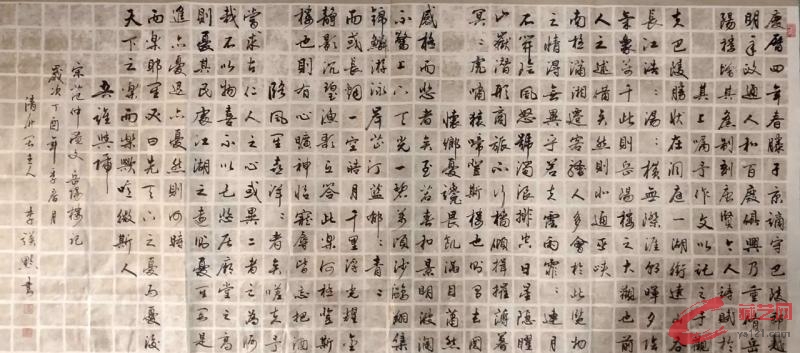 慶曆四年春滕子京謫守巴陵郡越
明年政通人和百廢俱興乃重修岳
陽樓增其舊制刻唐賢今人詩賦於
其上囑予作文以記之予觀
夫巴陵勝狀在洞庭一湖銜遠山吞
長江浩浩湯湯橫無際涯朝暉夕陰
氣象萬千此則岳陽樓之大觀也前
人之述備矣然則北通巫峽
南極瀟湘遷客騷人多會於此覽物
之情得無異乎若夫霪雨霏霏連月
不開陰風怒號濁浪排空日星隱曜
山嶽潛形商旅不行檣傾楫摧薄暮
冥冥虎嘯猿啼登斯樓也則有去國
懷鄉憂讒畏譏滿目蕭然
感極而悲者矣至若春和景明波瀾
不驚上下天光一碧萬頃沙鷗翔集
錦鱗游泳岸芷汀蘭郁郁青青
而或長烟一空皓月千里浮光耀金
靜影沉璧漁歌互答此樂何極登斯
樓也則有心曠神怡寵辱皆忘把酒
臨風其喜洋洋者矣嗟夫予
嘗求古仁人之心或異二者之為何
哉不以物喜不以己悲居廟堂之高
則憂其民處江湖之遠則憂其君是
進亦憂退亦憂然則何時
而樂耶其必曰先天下之憂而憂後
天下之樂而樂歟噫微斯人
吾誰與歸
宋范仲淹文岳陽樓記
歲次丁酉年季月
主人李書
雅艺网
ya121.com